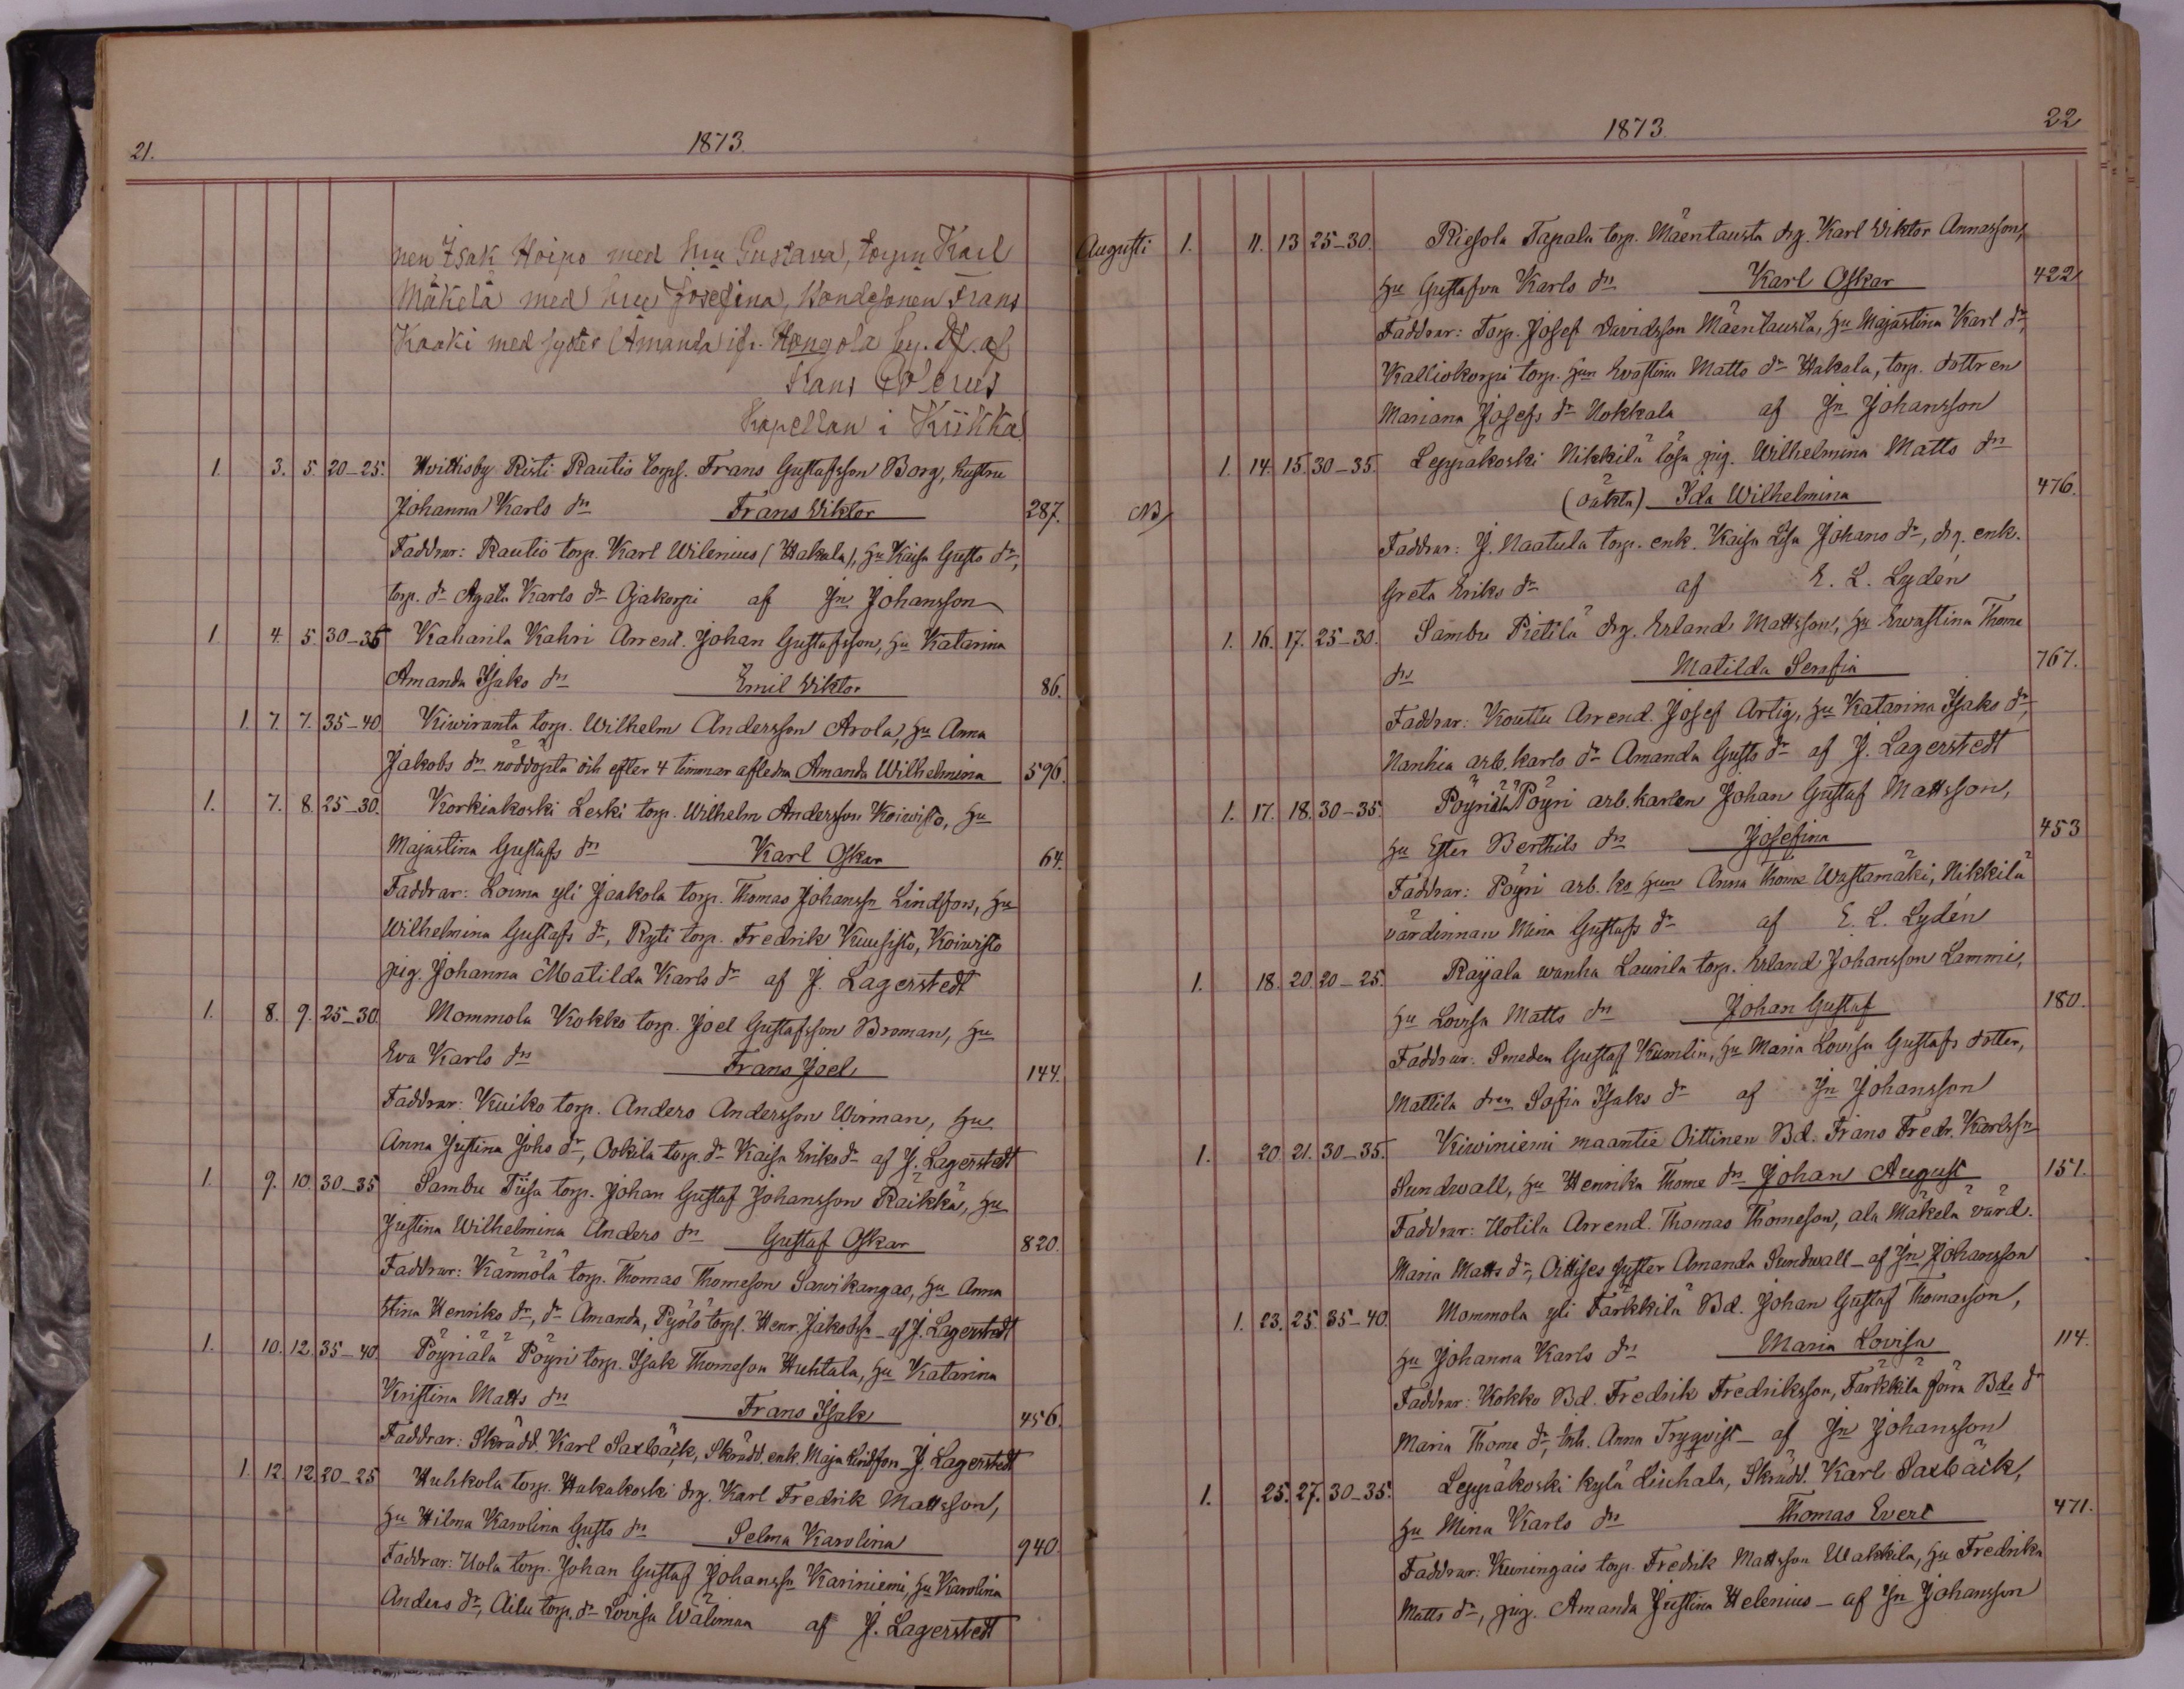 21.
1873.
nen Isak Hoipo med hru Gustava, torpn Karl
Mäkelä med hru Josefina, bondesonen Frans
Kaaki med syster Amanda ifr. Hongola by. Df. af
Frans Polerus
Kapellan i Kiikka
1. 3. 5. 20-25. Hvittisby Risti Rautio torps. Frans Gustafsson Borg, hustru
Johanna Karls dr Frans Viktor 287.
Faddrar: Rautio torp. Karl Wilenius (Hakala), hu Kaisa Gusts dr,
torp. dr Agata Karls dr Ojakorpi af Jn Johansson
1. 4. 5. 30-35 Kaharila Kahri Arrend. Johan Gustafsson, hu Katarina
Amanda Isaks dr Emil Viktor 86.
1. 7. 7. 35-40 Kiwiranta torp. Wilhelm Andersson Arola, hu Anna
Jakobs dr nöddöpta och efter 4 timmar aflidna Amanda Wilhelmina 596.
1. 7. 8. 25-30. Korkiakoski Leski torp. Wilhelm Andersson Koiwisto, hu
Majastina Gustafs dr Karl Oskar 64.
Faddrar: Loima yli Jaakola torp. Thomas Johanss Lindfors, hu
Wilhelmina Gustafs dr, Ryti torp. Fredrik Kuusisto, Koiwisto
pig. Johanna Matilda Karls dr af J. Lagerstedt
1. 8. 9. 25-30. Mommola Kokko torp. Joel Gustafsson Broman, hu
Eva Karls dr Frans Joel 144.
Faddrar: Kuiko torp. Anders Andersson Wirman, hu
Anna Justina Johs dr, Ookila torp. dr Kaisa Eriks dr af J. Lagerstedt
1. 9. 10. 30-35 Sambu Tiisa torp. Johan Gustaf Johansson Raikka, hu
Justina Wilhelmina Anders dr Gustaf Oskar 820.
Faddrar: Kännölä torp. Thomas Thomeson Sawikangas, hu Anna
Stina Henriks dr, dr Amanda, Pyölö torps. Henr. Jakobss - af J. Lagerstedt
1. 10. 12. 35-40 Pöyriälä Pöyri torp. Isak Thomeson Huhtala, hu Katarina
Kristina Matts dr Frans Isak 456.
Faddrar: Skrädd. Karl Saxbäck, Skrädd. enk. Maja Lindfon - J. Lagerstedt
1. 12. 12. 20-25 Huhkola torp. Hakakoski drg. Karl Fredrik Mattsson,
hu Hilma Karolina Gusts dr Selma Karolina 940.
Faddrar: Uola torp. Johan Gustaf Johanss Kariniemi, hu Karolina
Anders dr, Aila torp. dr Lovisa Wälimaa af J. Lagerstedt
1873.
22
Augusti 1. 11. 13 25-30. Riesola Tapala torp. Mäentausta drg. Karl Viktor Annasson,
hu Gustafva Karls dr Karl Oskar 422
Faddrar: Torp. Josef Davidsson Mäentausta, hu Majastina Karl dr,
Kalliokorpi torp. hun Evastina Matts dr Hakala, torp. dottren
Mariana Josefs dr Nokkala af Jn Johansson
1. 14. 15. 30-35. Leppäkoski Nikkilä lösa pig. Wilhelmina Matts dr
NB (oäkta) Ida Wilhelmina 476.
Faddrar: J. Naatula torp. enk. Kaisa Lisa Johans dr, drg. enk.
Greta Eriks dr af E. L. Lydén
1. 16. 17. 25-30. Sambu Pietilä drg. Erland Mattsson, hu Ewastina Thome
dr Matilda Serafia 767.
Faddrar: Kouttu Arrend. Josef Artig, hu Katarina Isaks dr,
Nanhia arb. karls dr Amanda Gusts dr af J. Lagerstedt
1. 17. 18. 30-35. Pöyriälä Pöyri arb. karlen Johan Gustaf Mattsson,
hu Ester Berthils dr Josefina 453
Faddrar: Pöyri arb. ks hun Anna Thome Wastamäki, Nikkilä
värdinnan Mina Gustafs dr af E. L. Lydén
1. 18. 20. 20-25. Raijala wanha Laurila torp. Erland Johansson Lammi,
hu Lovisa Matts dr Johan Gustaf 180.
Faddrar: Smeden Gustaf Kumlin, hu Maria Lovisa Gustafs dotter,
Mattila dren Sofia Isaks dr af Jn Johansson
1. 20. 21. 30-35. Kiwiniemi maantie Oittinen Bd. Frans Fredr. Karlss
Sundwall, hu Henrika Thome dr Johan August 151.
Faddrar: Uotila Arrend. Thomas Thomeson, ala Mäkelä värd.
Maria Matts dr, Oittises syster Amanda Sundwall - af Jn Johansson
1. 23. 25. 35-40. Mommola yli Farkkila Bd. Johan Gustaf Thomasson,
hu Johanna Karls dr Maria Lovisa 114.
Faddrar: Kokko Bd. Fredrik Fredriksson, Farkkila förra Bds dr
Maria Thome dr, Anna Trygqvist - af Jn Johansson
1. 25. 27. 30-35. Leppäkoski kylä Liuhala, Skrädd. Karl Saxbäck,
hu Mina Karls dr Thomas Evert 471.
Faddrar: Kuningais torp. Fredrik Mattsson Wakkila, hu Fredrika
Matts dr, pig. Amanda Justina Helenius - af Jn Johansson